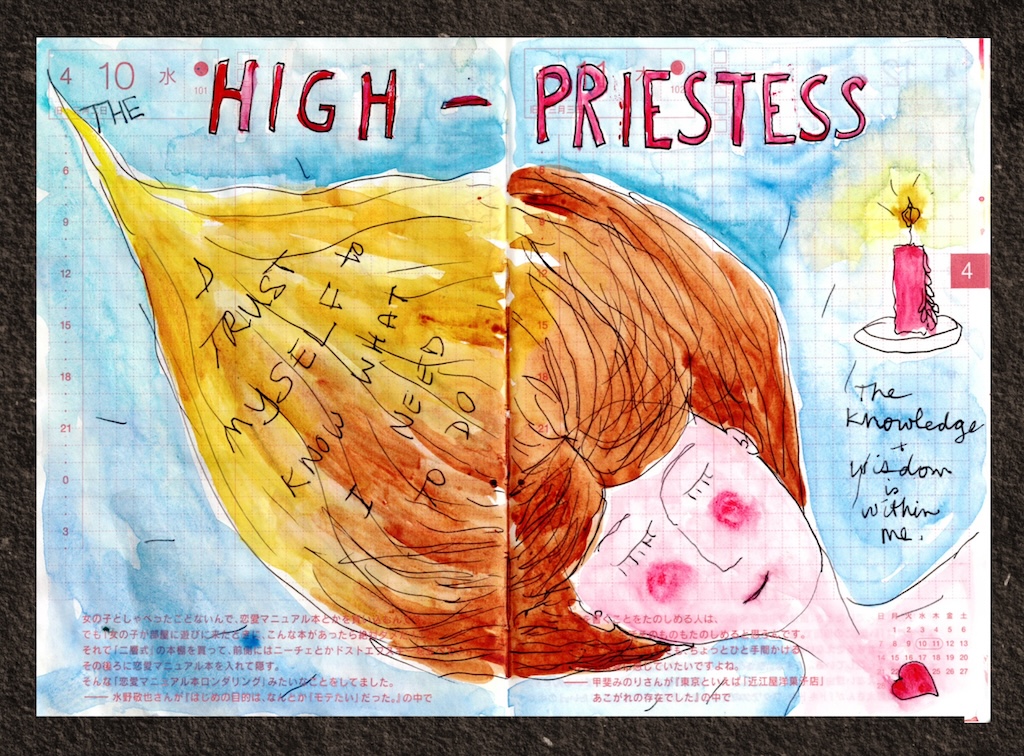 4 10 水
101
木
102
THE HIGH - PRIESTESS
6
9
12
15
18
21
0
3
I
TRUST
MYSELF to
KNOW WHAT
I NEED
TO DO
15
21
4
The
Knowledge
+
Wisdom
is
within
me.
女の子としゃべったことないんで、恋愛マニュアル本とかを買い
でも「女の子が部屋に遊びに来たときに、こんな本があったら絶
それで「二層式」の本棚を買って、前側にはニーチェとかドストエフスキー
その後ろに恋愛マニュアル本を入れて隠す。
そんな「恋愛マニュアル本ロンダリング」みたいなことをしてました。
—— 水野敬也さんが『はじめの目的は、なんとか「モテたい」だった。』の中で
くことをたのしめる人は、
そのものもたのしめると思うんです。
ちょっとひと手間かける
していたいですよね。
—— 甲斐みのりさんが『東京といえば「近江屋洋菓子店」
あこがれの存在でした』の中で
日 月 火 水 木 金 土
1 2 3 4 5 6
7 8 9 10 11 12 13
14 15 16 17 18 19 20
25 26 27